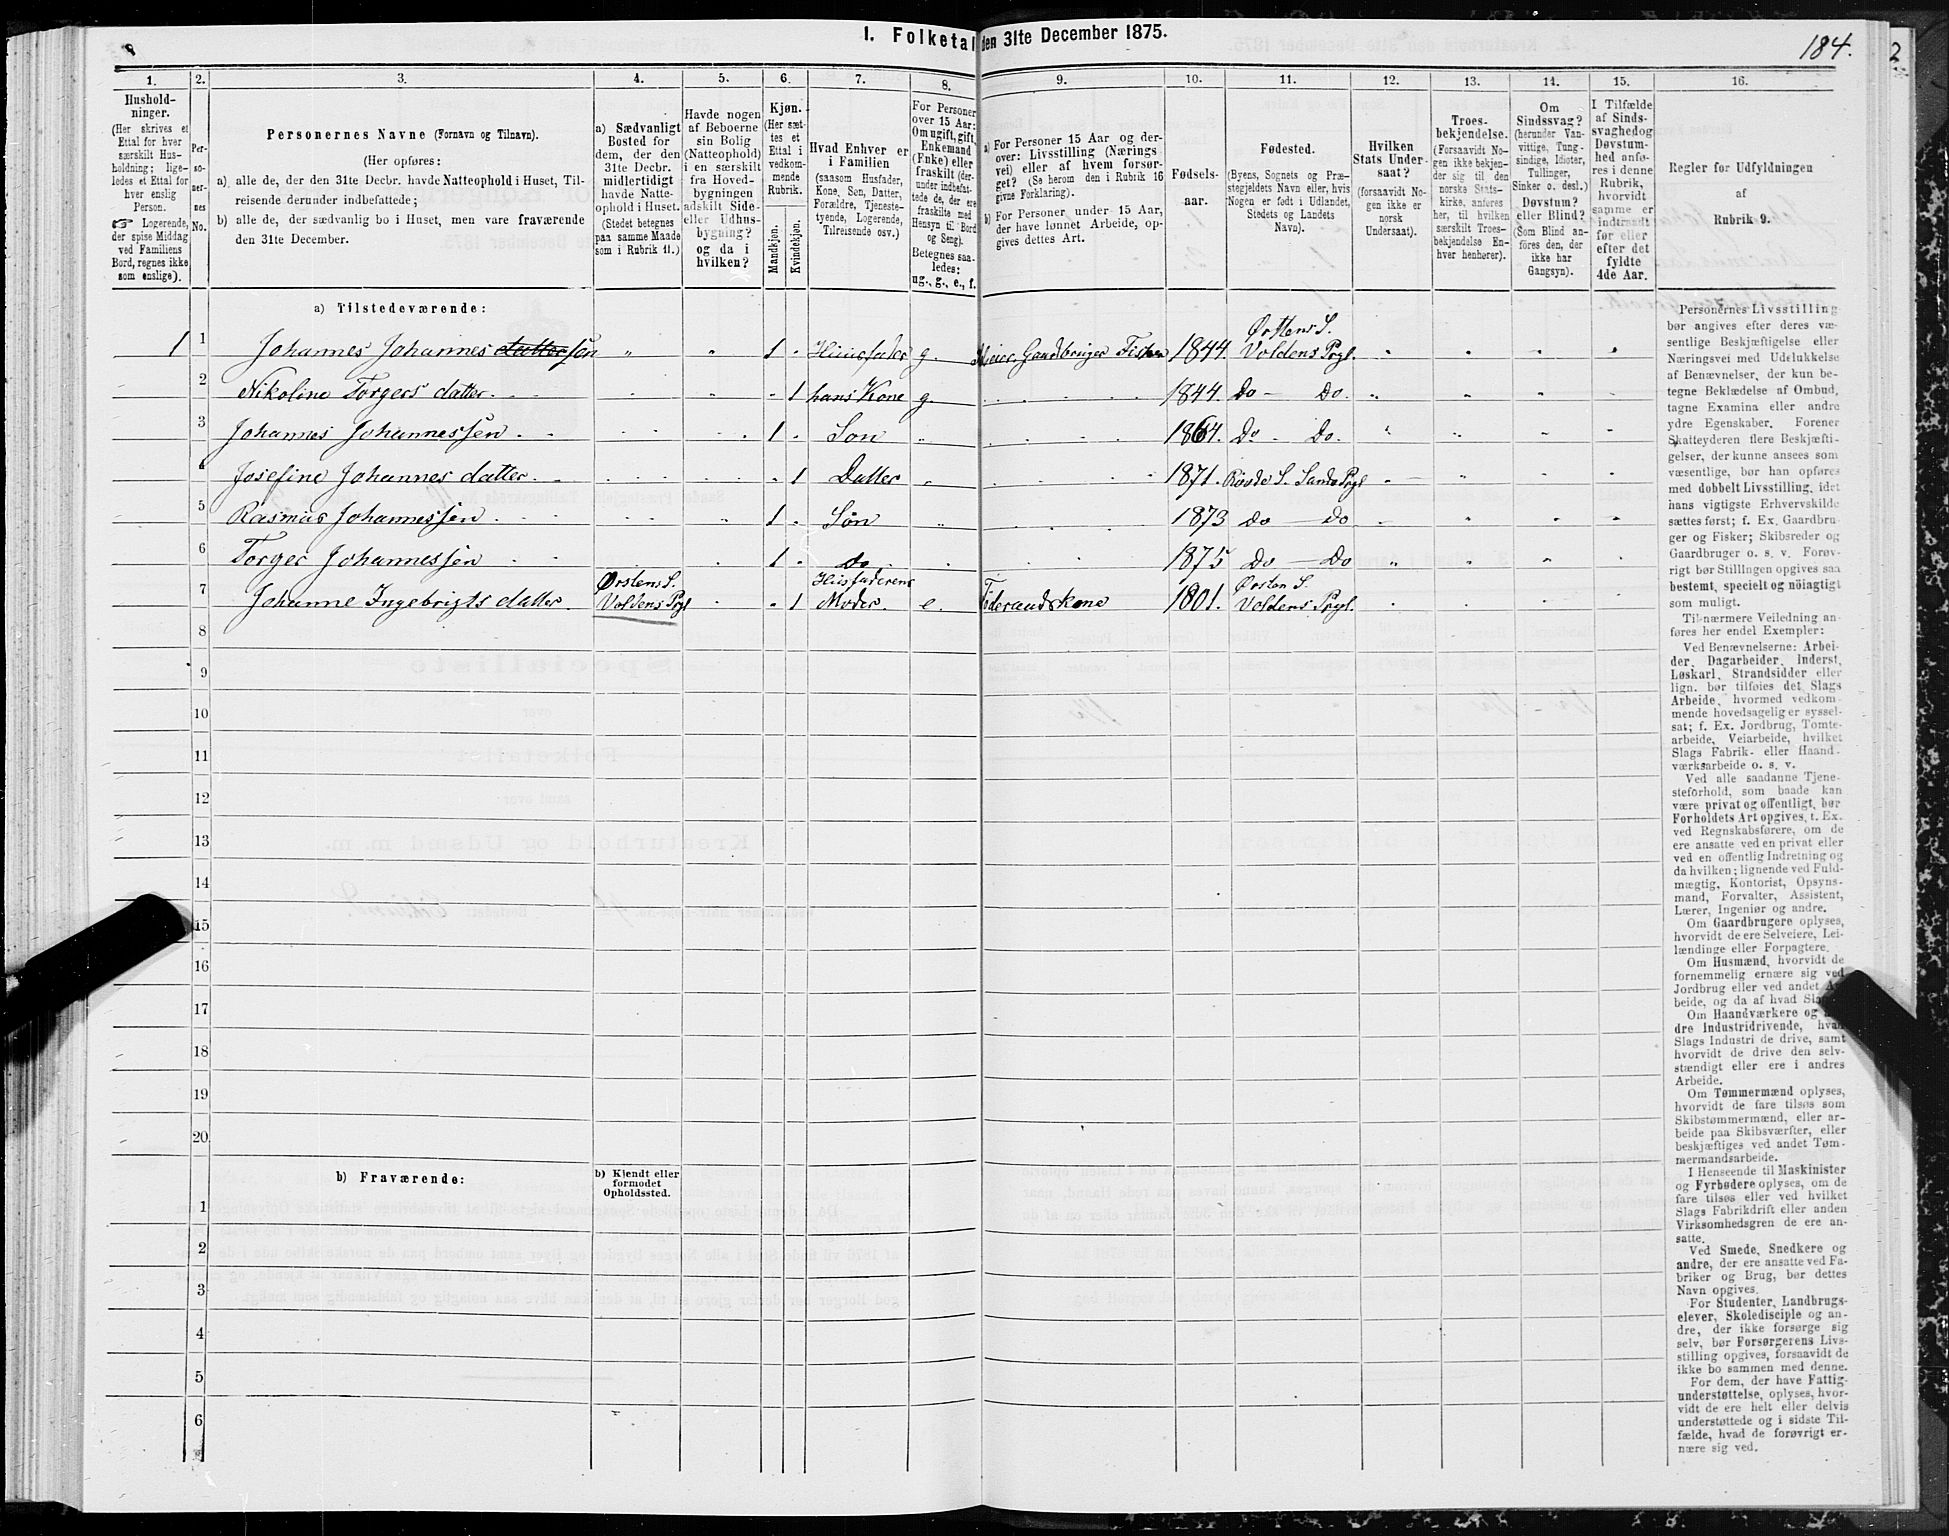 8
1. Folketal den 31te December 1875.
184.
2
1. 2. 3. 4. 5. 6. 7. 8. 9. 10. 11. 12. 13. 14. 15. 16.
Hushold-
ninger.
(Her skrives et
Ettal for hver
særskilt Hus-
holdning; lige-
ledes et Ettal for
hver enslig
Person.
☞ Logerende,
der spise Middag
ved Familiens
Bord, regnes ikke
som enslige).
Per-
so-
ner-
nes
No.
Personernes Navne (Fornavn og Tilnavn).
(Her opføres:
a) alle de, der den 31te Decbr. havde Natteophold i Huset, Til-
reisende derunder indbefattede;
b) alle de, der sædvanlig bo i Huset, men vare fraværende
den 31te December.
a) Sædvanligt
Bosted for
dem, der den
31te Decbr.
midlertidigt
havde Natte-
ophold i Huset.
(Stedet betegnes
paa samme Maade
som i Rubrik 11.)
Havde nogen
af Beboerne
sin Bolig
(Natteophold)
i en særskilt
fra Hoved-
bygningen
adskilt Side-
eller Udhus-
bygning?
og da i
hvilken?
Kjøn.
(Her sæt-
tes et
Ettal i
vedkom-
mende
Rubrik.
Mandkjøn.
Kvindekjøn.
Hvad Enhver er
i Familien
(saasom Husfader,
Kone, Søn, Datter,
Forældre, Tjeneste-
tyende, Logerende,
Tilreisende osv.)
For Personer
over 15 Aar:
Om ugift, gift,
Enkemand
(Enke) eller
fraskilt (der-
under indbefat-
tede de, der ere
fraskilte med
Hensyn til Bord
og Seng).
Betegnes saa-
ledes:
ug., g., e., f.
a) For Personer 15 Aar og der-
over: Livsstilling (Nærings-
vei) eller af hvem forsør-
get? (Se herom den i Rubrik 16
givne Forklaring).
b) For Personer under 15 Aar,
der have lønnet Arbeide, op-
gives dettes Art.
Fødsels-
aar.
Fødested.
(Byens, Sognets og Præ-
stegjeldets Navn eller, hvis
Nogen er født i Udlandet,
Stedets og Landets
Navn).
Hvilken
Stats Under-
saat?
(forsaavidt No-
gen ikke er
norsk
Undersaat).
Troes-
bekjendelse.
(Forsaavidt No-
gen ikke bekjen-
der sig til den
norske Stats-
kirke, anføres
her, til hvilken
særskilt Troes-
bekjendelse En-
hver henhører).
Om
Sindssvag?
(herunder Van-
vittige, Tung-
sindige, Idioter,
Tullinger,
Sinker o. desl.)
Døvstum?
eller Blind?
(Som Blind an-
føres den, der
ikke har
Gangsyn).
I Tilfælde
af Sinds-
svaghed og
Døvstum-
hed anfø-
res i denne
Rubrik,
hvorvidt
samme er
indtraadt
før eller
efter det
fyldte
4de Aar.
Regler for Udfyldningen
af
Rubrik 9.
a) Tilstedeværende:
1 1 Johannes Johannes datter sen " " 1 " Huusfader g. Gaardbruger Fisker 1844. Ørstens S. Voldens Prgl. " " " "
2 Nikoline Torgers datter. " " 1 hans Kone g. 1844. Do — Do. " " " "
3 Johannes Johannessen. 1 " Søn " 1864. Do. - Do. " " " "
4 Josefine Johannes datter. " 1 Datter " 1871. Røvde S. Sande Prgl " "
5 Rasmus Johannessen 1 " Søn " 1873 Do — Do " " "
6 Torger Johannessen 1 " Do 1875 Do — Do " " "
7 Johanne Ingebrigts datter. Ørstens S. Voldens Prgl " 1 Husfaderens Moder. e. Føderaadskone 1801. Ørsten S. Voldens Prgl.
8
9
10
11
12
13
14
15
16
17
18
19
20
b) Fraværende:
b) Kjendt eller
formodet
Opholdssted.
1
2
3
4
5
6
Personernes Livsstilling
bør angives efter deres væ-
sentlige Beskjæftigelse eller
Næringsvei med Udelukkelse
af Benævnelser, der kun be-
tegne Beklædelse af Ombud,
tagne Examina eller andre
ydre Egenskaber. Forener
Skatteyderen flere Beskjæfti-
gelser, der kunne ansees som
væsentlige, bør han opføres
med dobbelt Livsstilling, idet
hans vigtigste Erhvervskilde
sættes først; f. Ex. Gaardbru-
ger og Fisker; Skibsreder og
Gaardbruger o. s. v. Forøv-
rigt bør Stillingen opgives saa
bestemt, specielt og nøiagtigt
som muligt.
Til nærmere Veiledning an-
føres her endel Exempler:
Ved Benævnelserne: Arbei-
der, Dagarbeider, Inderst,
Løskarl, Strandsidder eller
lign. bør tilføies det Slags
Arbeide, hvormed vedkom-
mende hovedsagelig er syssel-
sat; f. Ex. Jordbrug, Tomte-
arbeide, Veiarbeide, hvilket
Slags Fabrik- eller Haand-
værksarbeide o. s. v.
Ved alle saadanne Tjene-
steforhold, som baade kan
være privat og offentligt, bør
Forholdets Art opgives, t. Ex.
ved Regnskabsførere, om de
ere ansatte ved en privat eller
ved en offentlig Indretning og
da hvilken; lignende ved Fuld-
mægtig, Kontorist, Opsyns-
mand, Forvalter, Assistent,
Lærer, Ingeniør og andre.
Om Gaardbrugere oplyses,
hvorvidt de ere Selveiere, Lei-
lændinge eller Forpagtere.
Om Husmænd, hvorvidt de
fornemmelig ernære sig ved
Jordbrug eller ved andet Ar-
beide, og da af hvad Slags.
Om Haandværkere og an-
dre Industridrivende, hvad
Slags Industri de drive, samt
hvorvidt de drive den selv-
stændigt eller ere i andres
Arbeide.
Om Tømmermænd oplyses,
hvorvidt de fare tilsøs som
Skibstømmermænd, eller ar-
beide paa Skibsværfter, eller
beskjæftiges ved andet Tøm-
mermandsarbeide.
I Henseende til Maskinister
og Fyrbødere oplyses, om de
fare tilsøs eller ved hvilket
Slags Fabrikdrift eller anden
Virksomhedsgren de ere an-
satte.
Ved Smede, Snedkere og
andre, der ere ansatte ved Fa-
briker og Brug, bør dettes
Navn opgives.
For Studenter, Landbrugs-
elever, Skoledisciple og an-
dre, der ikke forsørge sig
selv, bør Forsørgerens Livs-
stilling opgives, forsaavidt de
ikke bo sammen med denne.
For dem, der have Fattig-
understøttelse, oplyses, hvor-
vidt de ere helt eller delvis
understøttede og i sidste Til-
fælde, hvad de forøvrigt er-
nære sig ved.